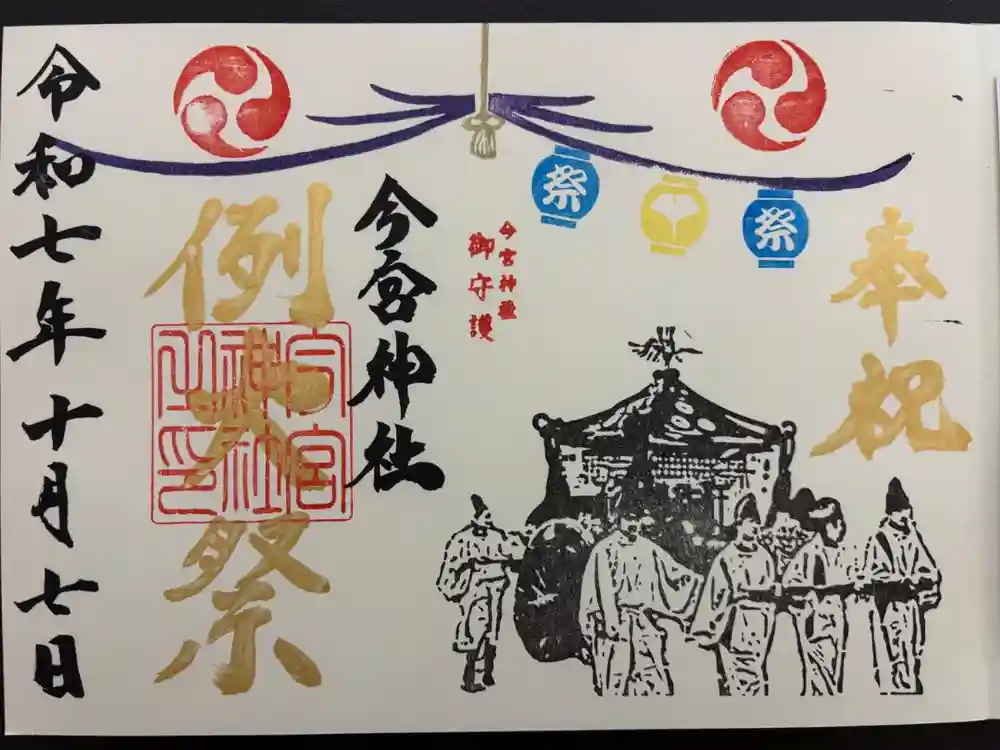 奉祝
祭
祭
今宮神社
御守護
今宮神社
例大祭
今宮神社之印
令和七年十月七日